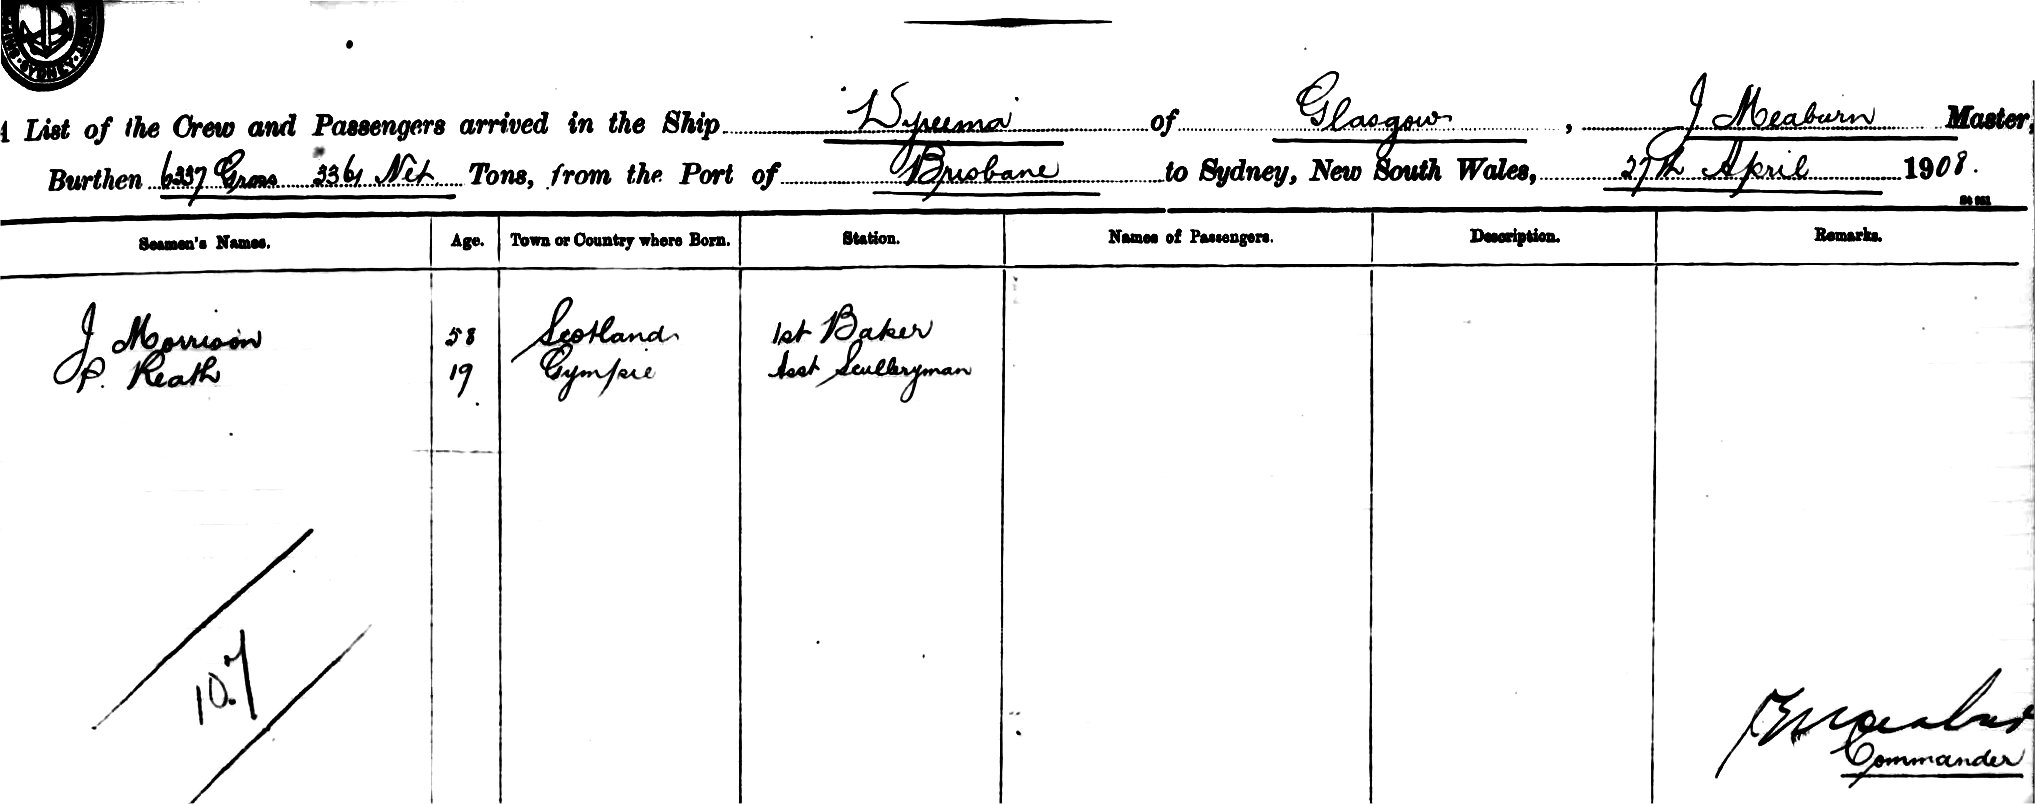 SYDNEY
A List of the Crew and Passengers arrived in the Ship Wyreema of Glasgow, J Meaburn Master,
Burthen 6337 Gross 3361 Net Tons, from the Port of Brisbane to Sydney, New South Wales, 27th April 1908.
Seamen's Names. Age. Town or Country where Born. Station. Names of Passengers. Description. Remarks.
J Morrison 58 Scotland 1st Baker
P. Reath 19 Gympie Asst Sculleryman
107
Commander